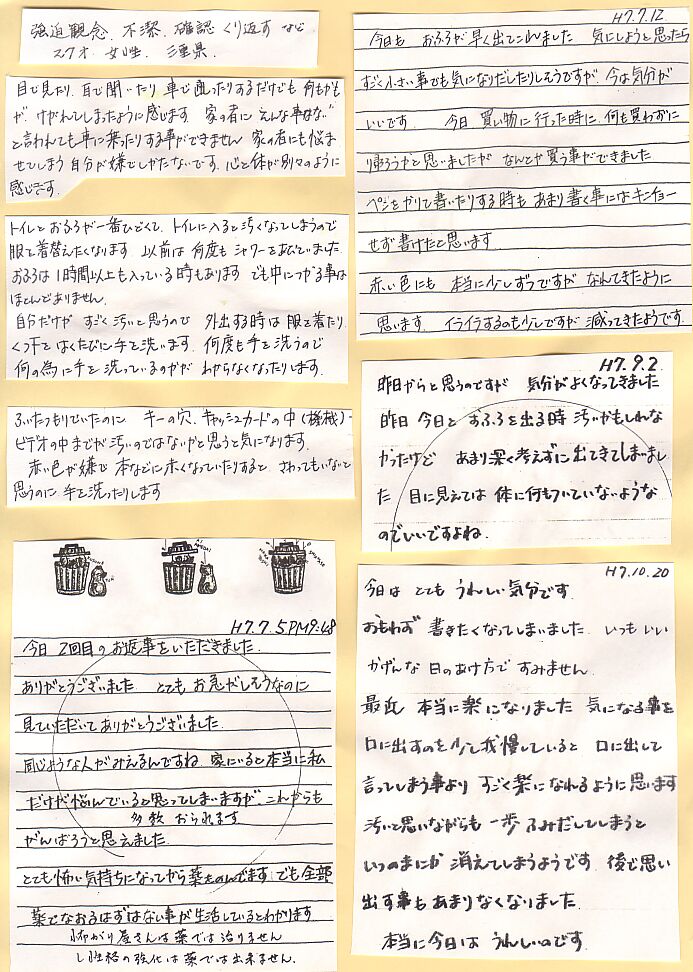 強迫観念 不潔、確認 くり返す など
27才 女性、三重県、
目で見たり、耳で聞いたり 車で通ったりするだけでも 何もかも
が、けがれてしまったように感じます 家の者に そんな事はない
と言われても車に乗ったりする事ができません 家の者にも悩ま
せてしまう 自分が嫌でしかたないです。心と体が別々のように
感じます。
トイレとおふろが一番ひどくて、トイレに入ると汚くなってしまうので
服を着替えたくなります 以前は 何度も シャワーをあびていました
おふろは1時間以上も入っている時もあります でも中につかる事は
ほとんどありません。
自分だけが すごく汚いと思うので 外出する時は 服を着たり、
くつ下をはくたびに手を洗います 何度も手を洗うので
何の為に手を洗っているのかが わからなくなったりします。
ふいたつもりでいたのに キーの穴、キャッシュカードの中(機械)・
ビデオの中までが汚いのではないかと思うと気になります。
赤い色が嫌で 本などに赤くなっていたりすると、さわってもいないと
思うのに 手を洗ったりします
H7.7.5 PM9:48
今日 2回目の お返事をいただきました。
ありがとうございました とても お急がしそうなのに
見ていただいて ありがとうございました
同じような人がみえるんですね 家にいると本当に私
だけが悩んでいると思ってしまいますが、これからも
多数 おられます
がんばろうと思えました
とても怖い気持ちになってから薬をのんでます でも全部
薬でなおるはずはない事が生活しているとわかります
怖がり屋さんは 薬では 治りません
し 性格の強化は 薬では出来ません。
H7.7.12
今日も おふろが早く出てこれました 気にしようと思ったら
すごく小さい事でも気になりだしたりしそうですが、今は気分が
いいです 今日 買い物に行った時に 何も買わずに
帰ろうかと思いましたが なんとか買う事ができました
ペンをかりて書いたりする時も あまり書く事にはキンチョー
せず書けたと思います
赤い色にも 本当に少しずつですが なれてきたように
思います イライラするのも少しですが 減ってきたようです
H7.9.2.
昨日からと思うのですが 気分がよくなってきました
昨日 今日と おふろを出る時 汚いかもしれな
かったけど あまり深く考えずに出てきてしまいまし
た 目に見えては 体に何もついていないような
のでいいですよね。
H7.10.20
今日は とても うれしい気分です
おもわず 書きたくなってしまいました いつも いい
かげんな 日のあけ方で すみません。
最近 本当に楽になりました 気になる事を
口に出すのを少し我慢していると 口に出して
言ってしまう事より すごく楽になれるように思います
汚いと思いながらも 一歩 ふみだしてしまうと
いつのまにか 消えてしまうようです 後で思い
出す事も あまりなくなりました。
本当に今日は うれしいのです。